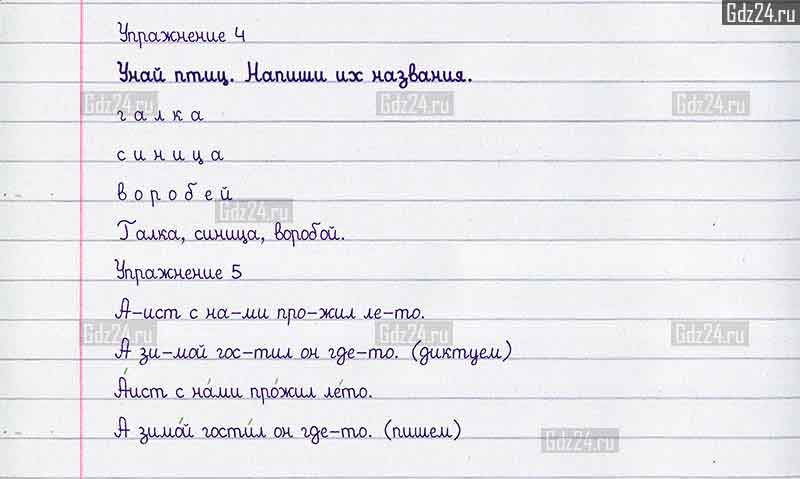 Gdz24.ru
Упражнение 4
Узнай птиц. Напиши их названия.
Gdz24.ru Gdz24.ru Gdz24.ru
г а л к а
с и н и ц а
в о р о б е й
Gdz24.ru
Галка, синица, воробой.
Упражнение 5
А-ист с на-ми про-жил ле-то.
Gdz24.ru Gdz24.ru Gdz24.ru
А зи-мой гос-тил он где-то. (диктуем)
А́ист с на́ми про́жил ле́то.
А зимо́й гости́л он где-то. (пишем)
Gdz24.ru